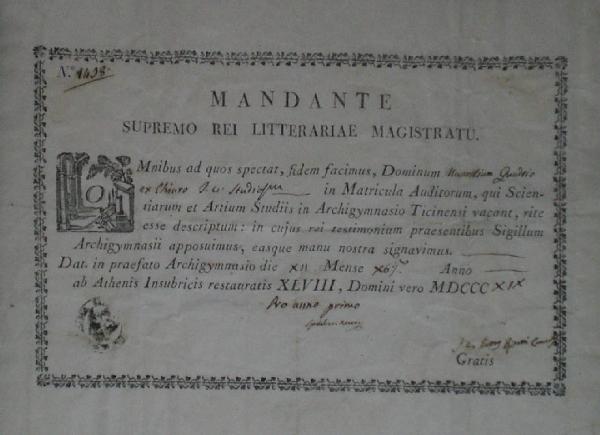 N.º 1498.
MANDANTE
SUPREMO REI LITTERARIAE MAGISTRATU.
OMnibus ad quos spectat, fidem facimus, Dominum Quadrio
ex in Matricula Auditorum, qui Scien-
tiarum et Artium Studiis in Archigymnasio Ticinensi vacant, rite
esse descriptum: in cujus rei testimonium praesentibus Sigillum
Archigymnasii apposuimus, easque manu nostra signavimus.
Dat. in praefato Archigymnasio die Mense Anno
ab Athenis Insubricis restauratis XLVIII, Domini vero MDCCC
Pro anno primo
Gratis